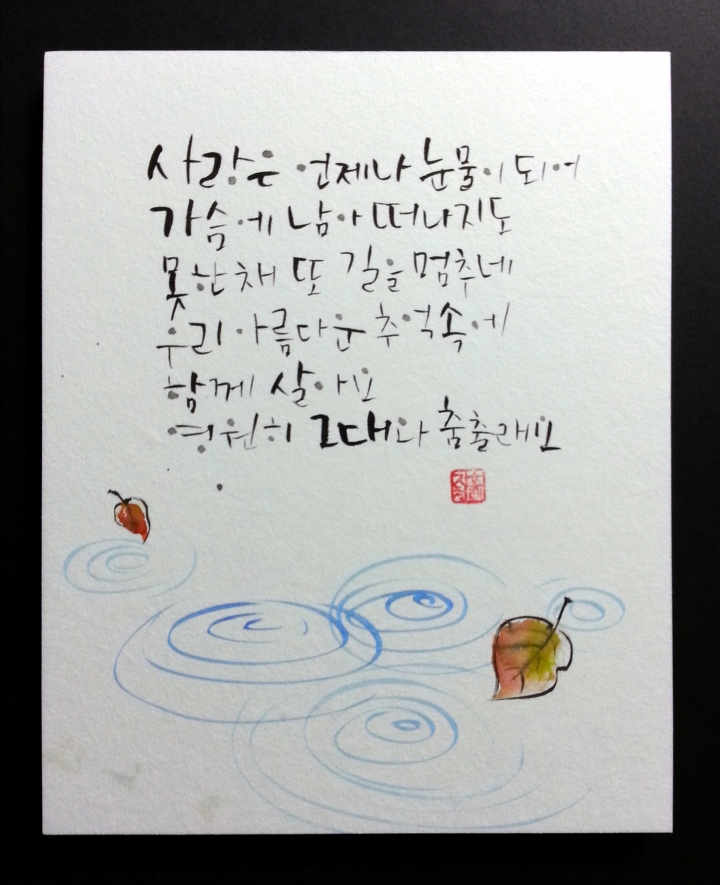 사랑은 언제나 눈물이 되어
가슴에 남아 떠나지도
못한채 또 길을 멈추네
우리 아름다운 추억속에
함께 살아요
영원히 그대와 춤출래요